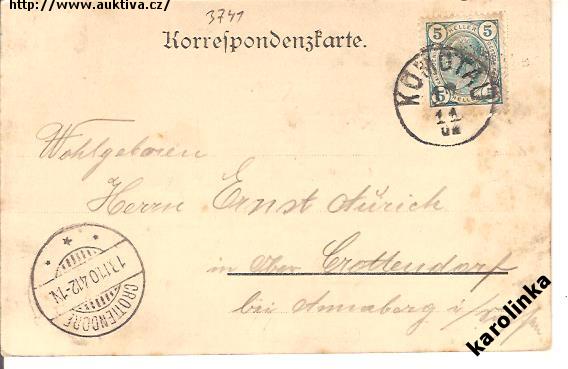 http://www.auktiva.cz/
3741
Korrespondenzkarte.
5 HELLER 5
5 5
KOMOTAU
11
02
Wohlgeboren
Herrn Ernst Aurich
in Ober Crottendorf
bei Annaberg i/
CROTTENDORF
karolinka